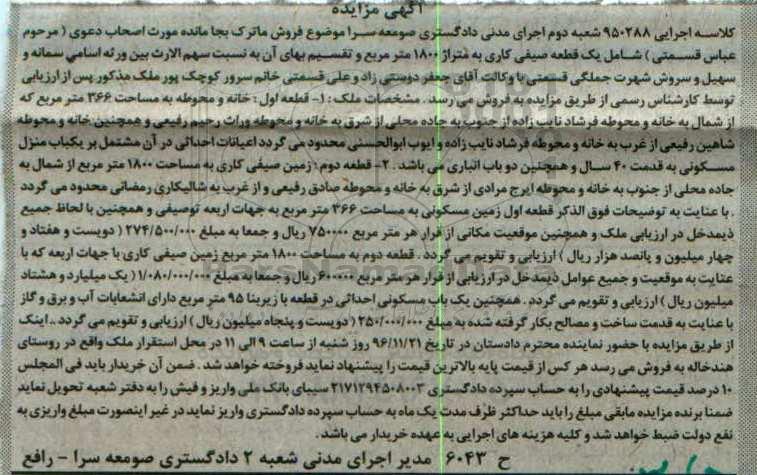 آگهی مزایده
کلاسه اجرایی ۹۵۰۲۸۸ شعبه دوم اجرای مدنی دادگستری صومعه سرا موضوع فروش ماترک بجا مانده مورث اصحاب دعوی ( مرحوم
عباس قسمتی ) شامل یک قطعه صیفی کاری به متراژ ۱۸۰۰ متر مربع و تقسیم بهای آن به نسبت سهم الارث بین ورثه اسامی سمانه و
سهیل و سروش شهرت جملگی قسمتی با وکالت آقای جعفر دوستی زاد و علی قسمتی خانم سرور کوچک پور ملک مذکور پس از ارزیابی
توسط کارشناس رسمی از طریق مزایده به فروش می رسد . مشخصات ملک : ۱- قطعه اول : خانه و محوطه به مساحت ۳۶۶ متر مربع که
از شمال به خانه و محوطه فرشاد نایب زاده از جنوب به جاده محلی از شرق به خانه و محوطه وراث رحیم رفیعی و همچنین خانه و محوطه
شاهین رفیعی از غرب به خانه و محوطه فرشاد نایب زاده و ایوب ابوالحسنی محدود می گردد اعیانات احداثی در آن مشتمل بر یکباب منزل
مسکونی به قدمت ۴۰ سال و همچنین دو باب انباری می باشد . ۲- قطعه دوم : زمین صیفی کاری به مساحت ۱۸۰۰ متر مربع از شمال به
جاده محلی از جنوب به خانه و محوطه ایرج مرادی از شرق به خانه و محوطه صادق رفیعی و از غرب به شالیکاری رمضانی محدود می گردد
. با عنایت به توضیحات فوق الذکر قطعه اول زمین مسکونی به مساحت ۳۶۶ متر مربع به جهات اربعه توصیفی و همچنین با لحاظ جمیع
ذیمدخل در ارزیابی ملک و همچنین موقعیت مکانی از قرار هر متر مربع ۷۵۰۰۰۰ ریال و جمعا به مبلغ ۲۷۴/۵۰۰/۰۰۰ ( دویست و هفتاد و
چهار میلیون و پانصد هزار ریال ) ارزیابی و تقویم می گردد . قطعه دوم به مساحت ۱۸۰۰ متر مربع زمین صیفی کاری با جهات اربعه که با
عنایت به موقعیت و جمیع عوامل ذیمدخل در ارزیابی از قرار هر متر مربع ۶۰۰۰۰۰ ریال و جمعا به مبلغ ۱/۰۸۰/۰۰۰/۰۰۰ ( یک میلیارد و هشتاد
میلیون ریال ) ارزیابی و تقویم می گردد . همچنین یک باب مسکونی احداثی در قطعه با زیربنا ۹۵ متر مربع دارای انشعابات آب و برق و گاز
با عنایت به قدمت ساخت و مصالح بکار گرفته شده به مبلغ ۲۵۰/۰۰۰/۰۰۰ ( دویست و پنجاه میلیون ریال ) ارزیابی و تقویم می گردد .. اینک
از طریق مزایده با حضور نماینده محترم دادستان در تاریخ ۹۶/۱۱/۲۱ روز شنبه از ساعت ۹ الی ۱۱ در محل استقرار ملک واقع در روستای
هندخاله به فروش می رسد هر کس از قیمت پایه بالاترین قیمت را پیشنهاد نماید فروخته خواهد شد . ضمن آن خریدار باید فی المجلس
۱۰ درصد قیمت پیشنهادی را به حساب سپرده دادگستری ۲۱۷۱۲۹۴۵۰۸۰۰۳ سیبای بانک ملی واریز و فیش را به دفتر شعبه تحویل نماید
ضمنا برنده مزایده مابقی مبلغ را باید حداکثر ظرف مدت یک ماه به حساب سپرده دادگستری واریز نماید در غیر اینصورت مبلغ واریزی به
نفع دولت ضبط خواهد شد و کلیه هزینه های اجرایی به عهده خریدار می باشد .
ح ۶۰۴۳ مدیر اجرای مدنی شعبه ۲ دادگستری صومعه سرا - رافع